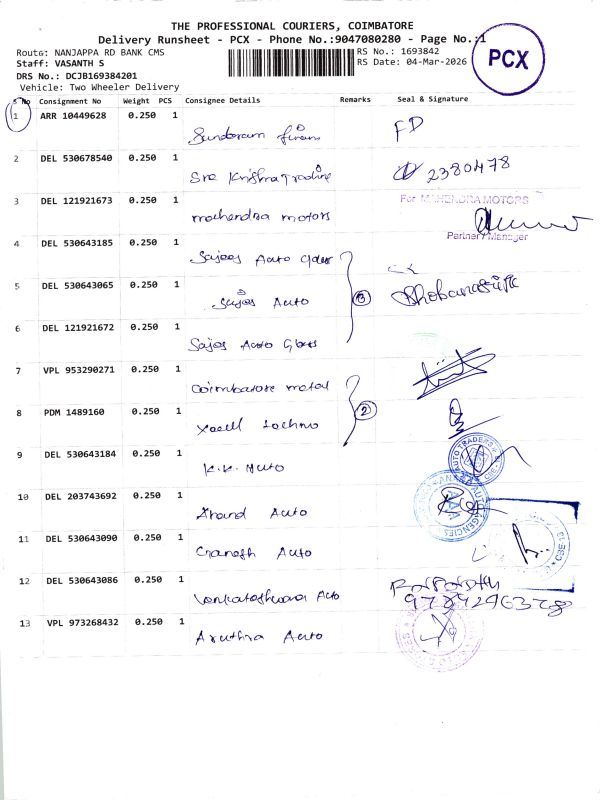 THE PROFESSIONAL COURIERS, COIMBATORE
Delivery Runsheet - PCX - Phone No.:9047080280 - Page No.:1
Route: NANJAPPA RD BANK CMS
RS No.: 1693842
Staff: VASANTH S
RS Date: 04-Mar-2026
DRS No.: DCJB169384201
Vehicle: Two Wheeler Delivery
PCX
S No Consignment No Weight PCS Consignee Details Remarks Seal & Signature
1 ARR 10449628 0.250 1 Sundaram FD
2 DEL 530678540 0.250 1 Sre Krishna 2380478
3 DEL 121921673 0.250 1 mahendra motors
For MAHENDRA MOTORS
Partner / Manager
4 DEL 530643185 0.250 1 Auto
5 DEL 530643065 0.250 1 Auto 3
6 DEL 121921672 0.250 1 Auto
7 VPL 953290271 0.250 1 Coimbatore metal
8 PDM 1489160 0.250 1 2
9 DEL 530643184 0.250 1 K.K. Auto
AUTO TRADERS
10 DEL 203743692 0.250 1 Anand Auto
AGENCIES
11 DEL 530643090 0.250 1 Ganesh Auto
12 DEL 530643086 0.250 1 Venkateshwara Auto
13 VPL 973268432 0.250 1 Aruthra Auto